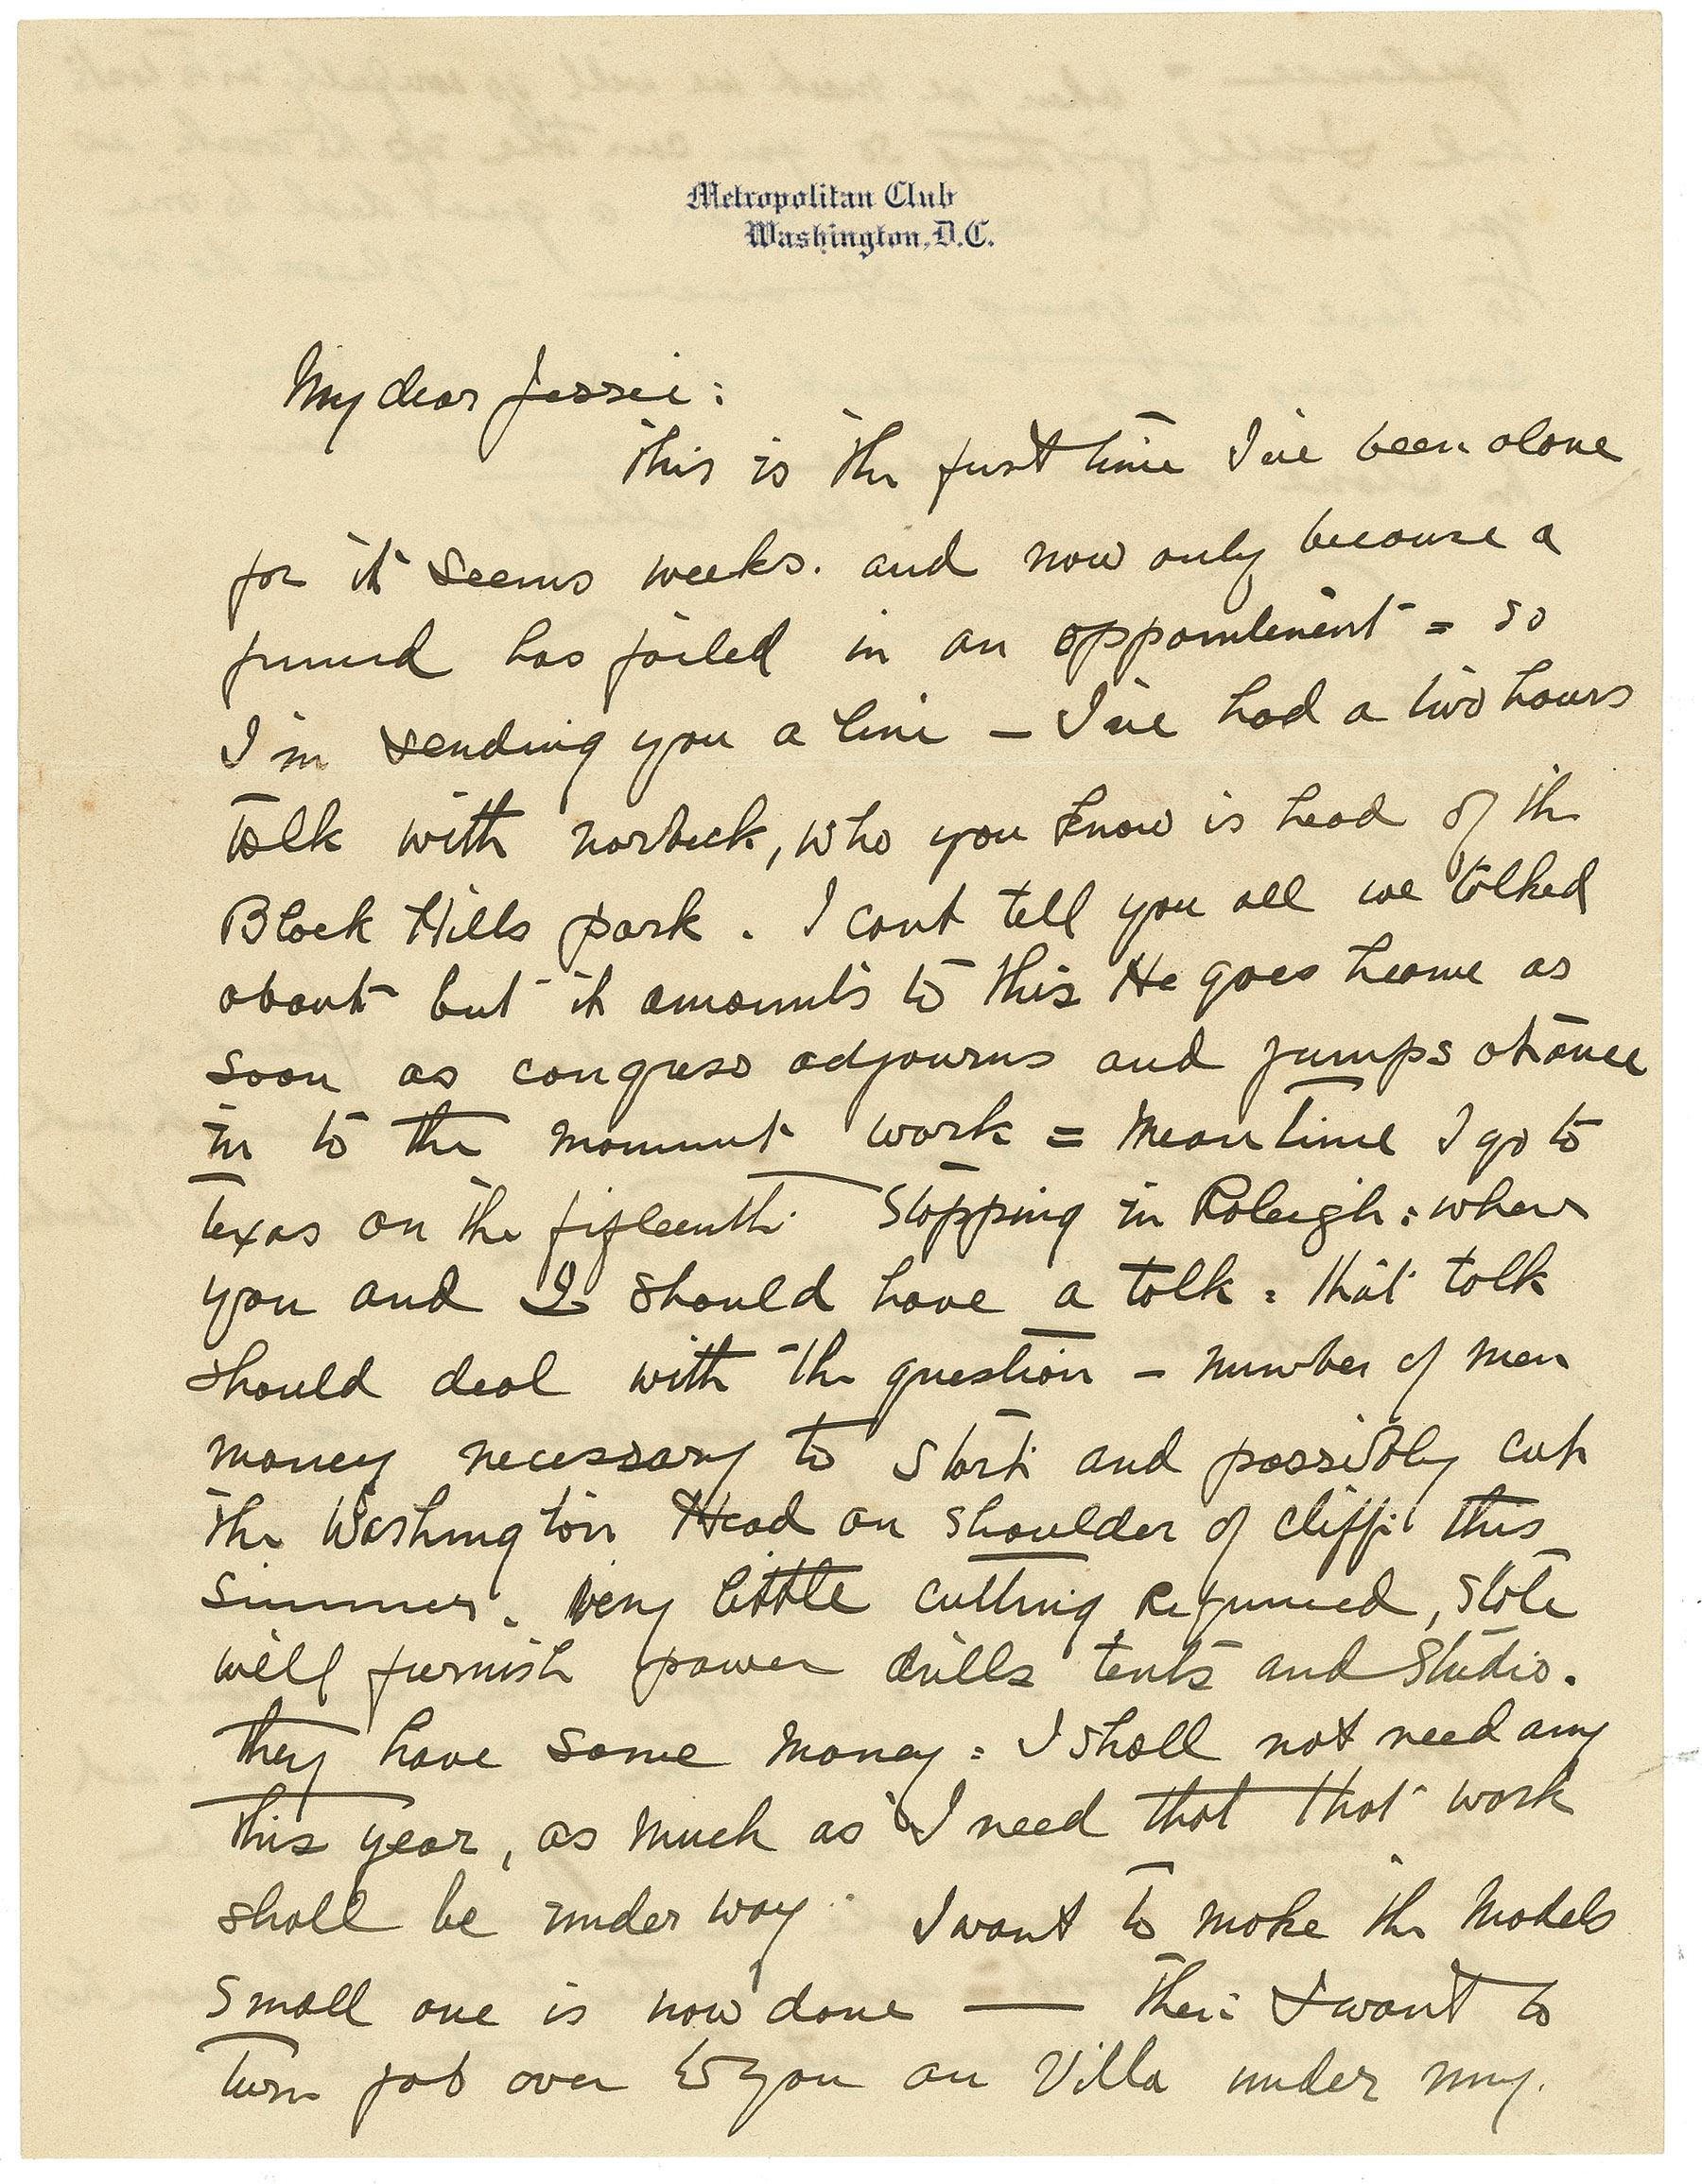 Metropolitan Club
Washington, D.C.
My dear Jessie:
This is the first time I've been alone
for it seems weeks. and now only because a
friend has failed in an appointment = so
I'm sending you a line — I've had a two hours
talk with Norbeck, who you know is head of the
Black Hills park. I cant tell you all we talked
about but it amounts to this He goes home as
soon as congress adjourns and jumps at once
in to the monument work = Meantime I go to
Texas on the fifteenth stopping in Raleigh: where
you and I should have a talk: that talk
should deal with the question — number of men
money necessary to start and possibly cut
the Washington Head on shoulder of cliff: this
summer. Very little cutting required, state
will furnish power drills tents and studio.
they have some money: I shall not need any
this year, as much as I need that that work
shall be under way. I want to make the models
small one is now done — then I want to
turn job over to you an Villa under my.